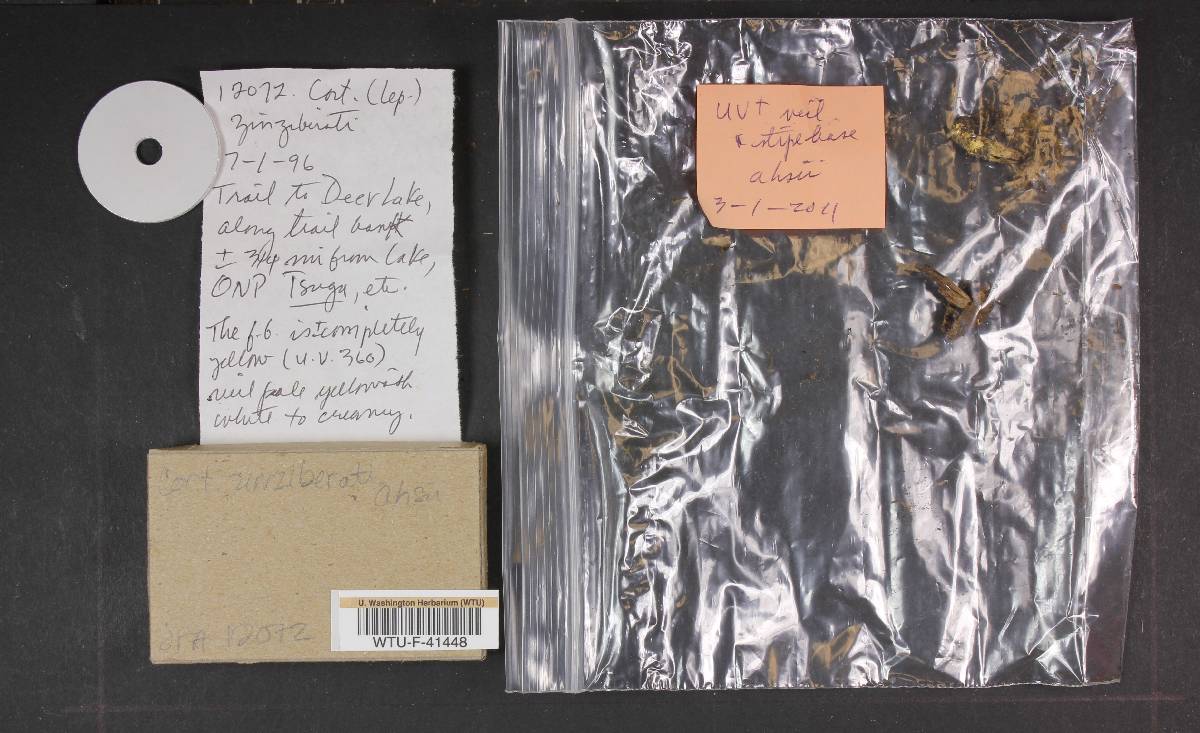 12072. Cort. (Lep.)
zinziberati
7-1-96
Trail to Deer Lake,
along trail bank
± 3/4 mi from Lake,
ONP Tsuga, etc.
The f.b. is ± completely
yellow (U.V. 360)
veil pale yellowish
white to creamy.
UV+ veil
& stipe base
ahsii
3-1-2011
Cort zinziberati
ahsii
12072
U. Washington Herbarium (WTU)
WTU-F-41448